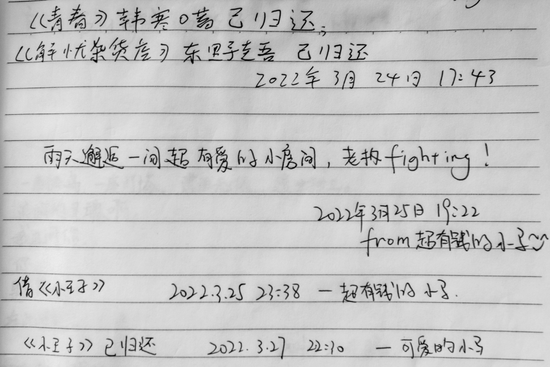 《青春》韩寒 已归还。
《解忧杂货店》东野圭吾 已归还
2022年3月24日 17:43
雨天邂逅一间超有爱的小房间，老板fighting！
2022年3月25日 19:22
from 超有钱的小马
借《小王子》 2022.3.25 23:38 —超有钱的小马.
《小王子》已归还 2022.3.27 22:10 —可爱的小马